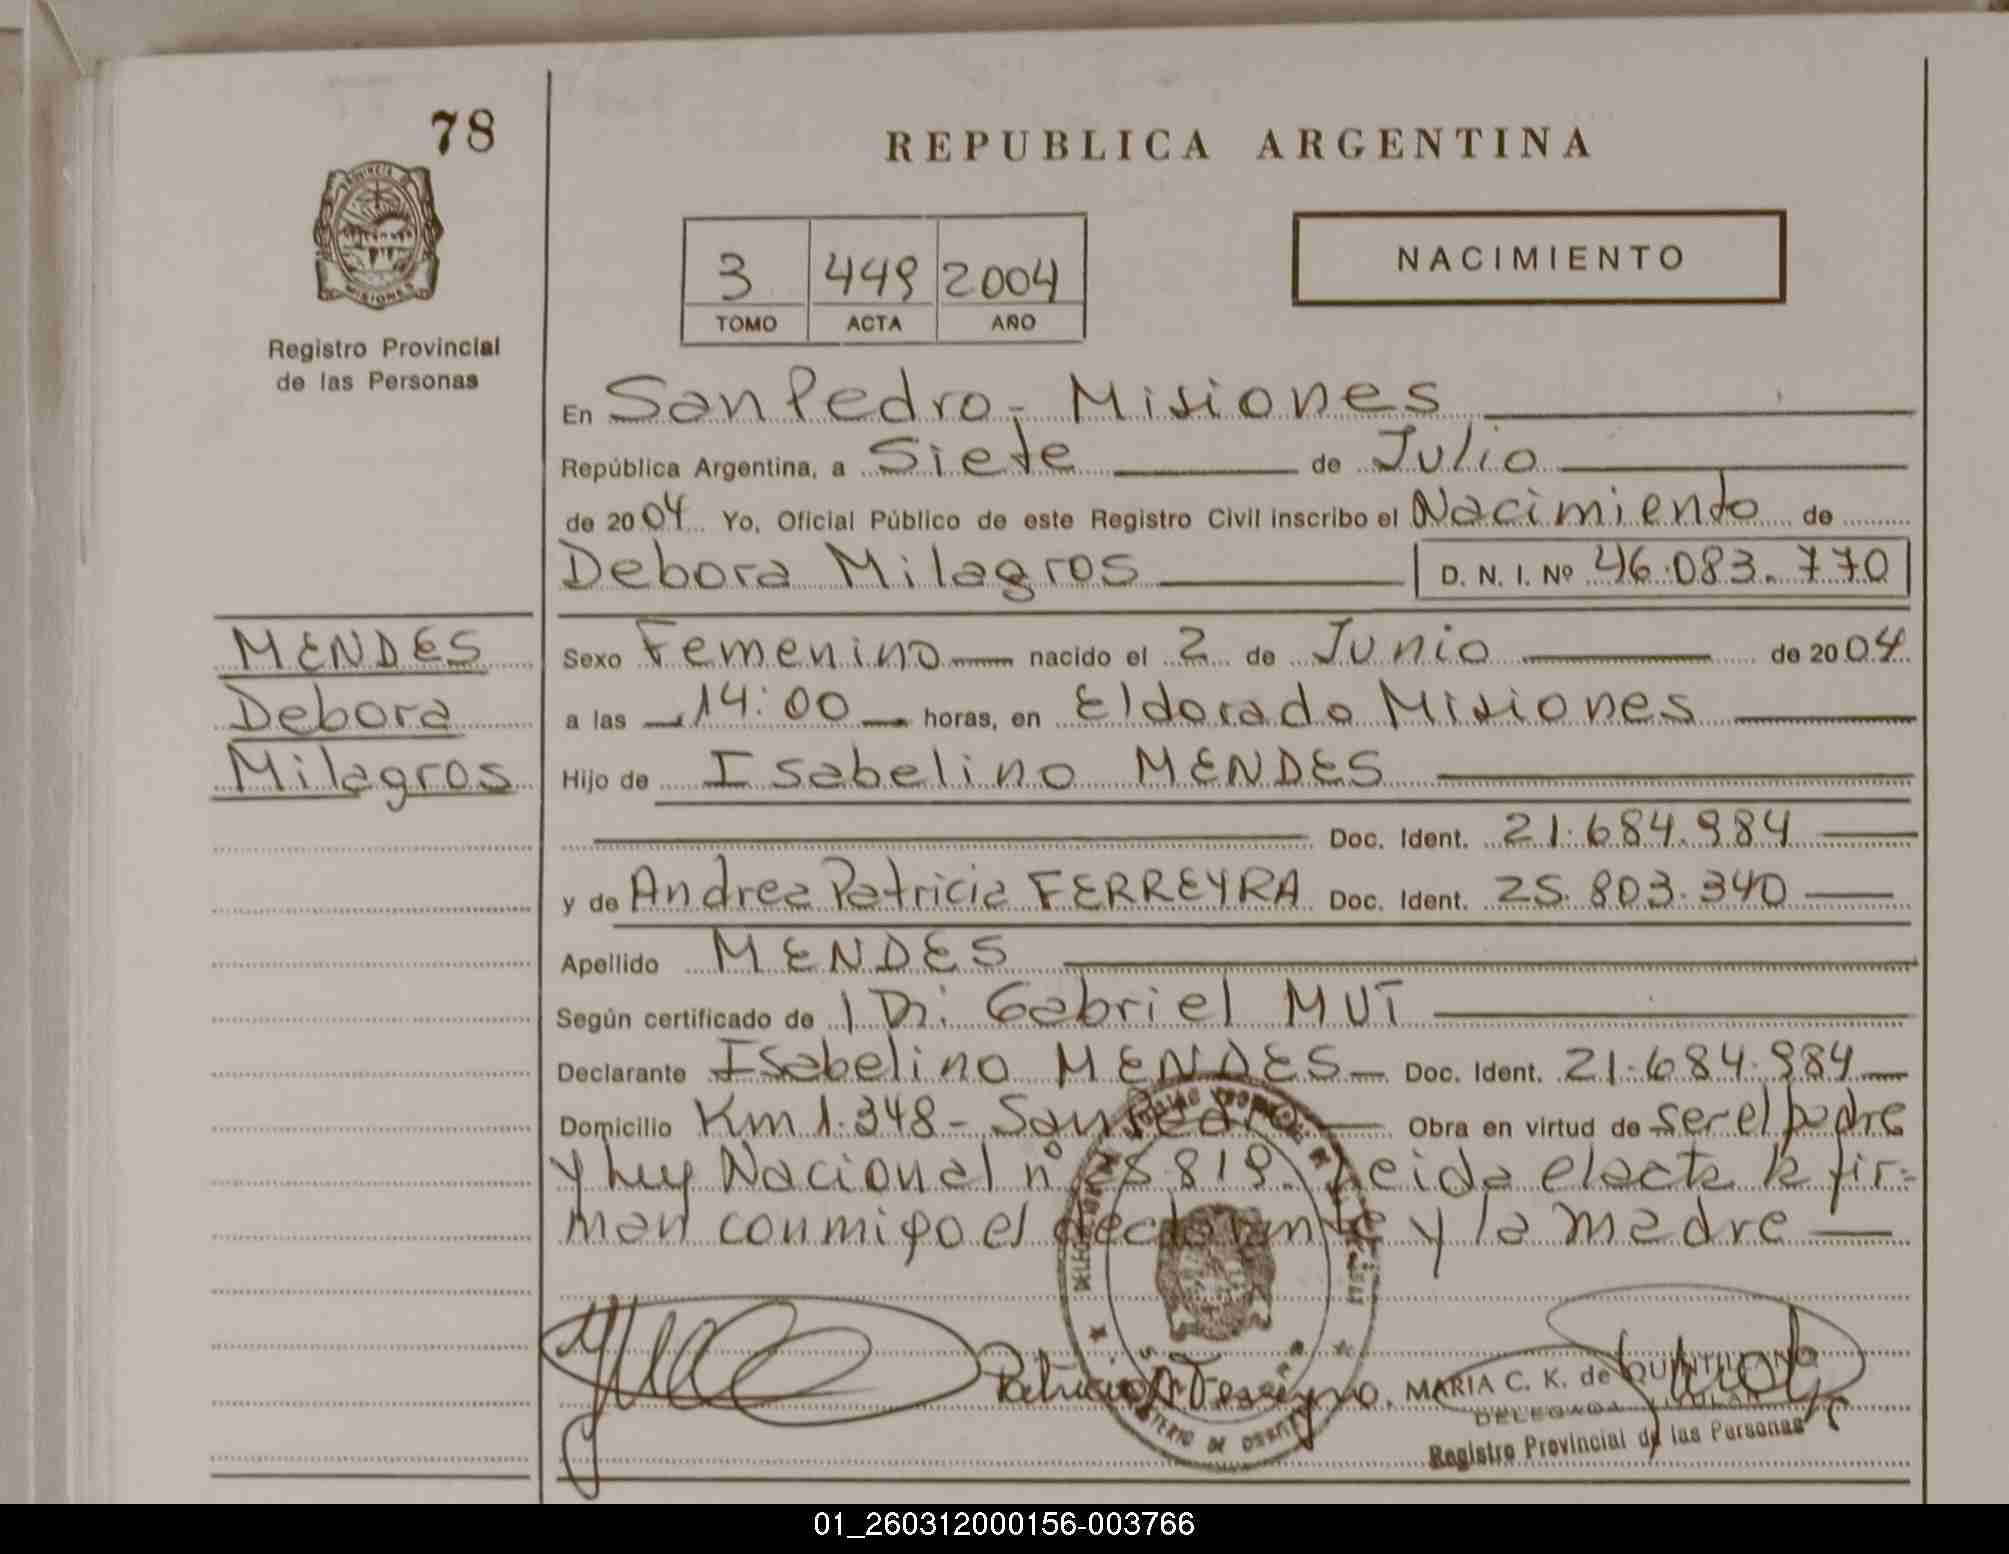 78
REPUBLICA ARGENTINA
PROVINCIA DE
MISIONES
Registro Provincial
de las Personas
3 449 2004
TOMO ACTA AÑO
NACIMIENTO
En San Pedro - Misiones
República Argentina, a Siete de Julio
de 2004 Yo, Oficial Público de este Registro Civil inscribo el Nacimiento de
Debora Milagros D. N. I. Nº 46.083.770
MENDES
Debora
Milagros
Sexo Femenino nacido el 2 de Junio de 2004
a las 14:00 horas, en Eldorado Misiones
Hijo de Isabelino MENDES
Doc. Ident. 21.684.984
y de Andrea Patricia FERREYRA Doc. Ident. 25.803.340
Apellido MENDES
Según certificado de Gabriel MUT
Declarante Isabelino MENDES Doc. Ident. 21.684.984
Domicilio Km 1.348 - San Pedro Obra en virtud de ser el padre
y Ley Nacional nº 25.819. Leida el acta la fir-
man conmigo el declarante y la madre
Patricia A Ferreyra.
MARIA C. K. de QUINTILIANO
DELEGADA TITULAR
Registro Provincial de las Personas
01_260312000156-003766